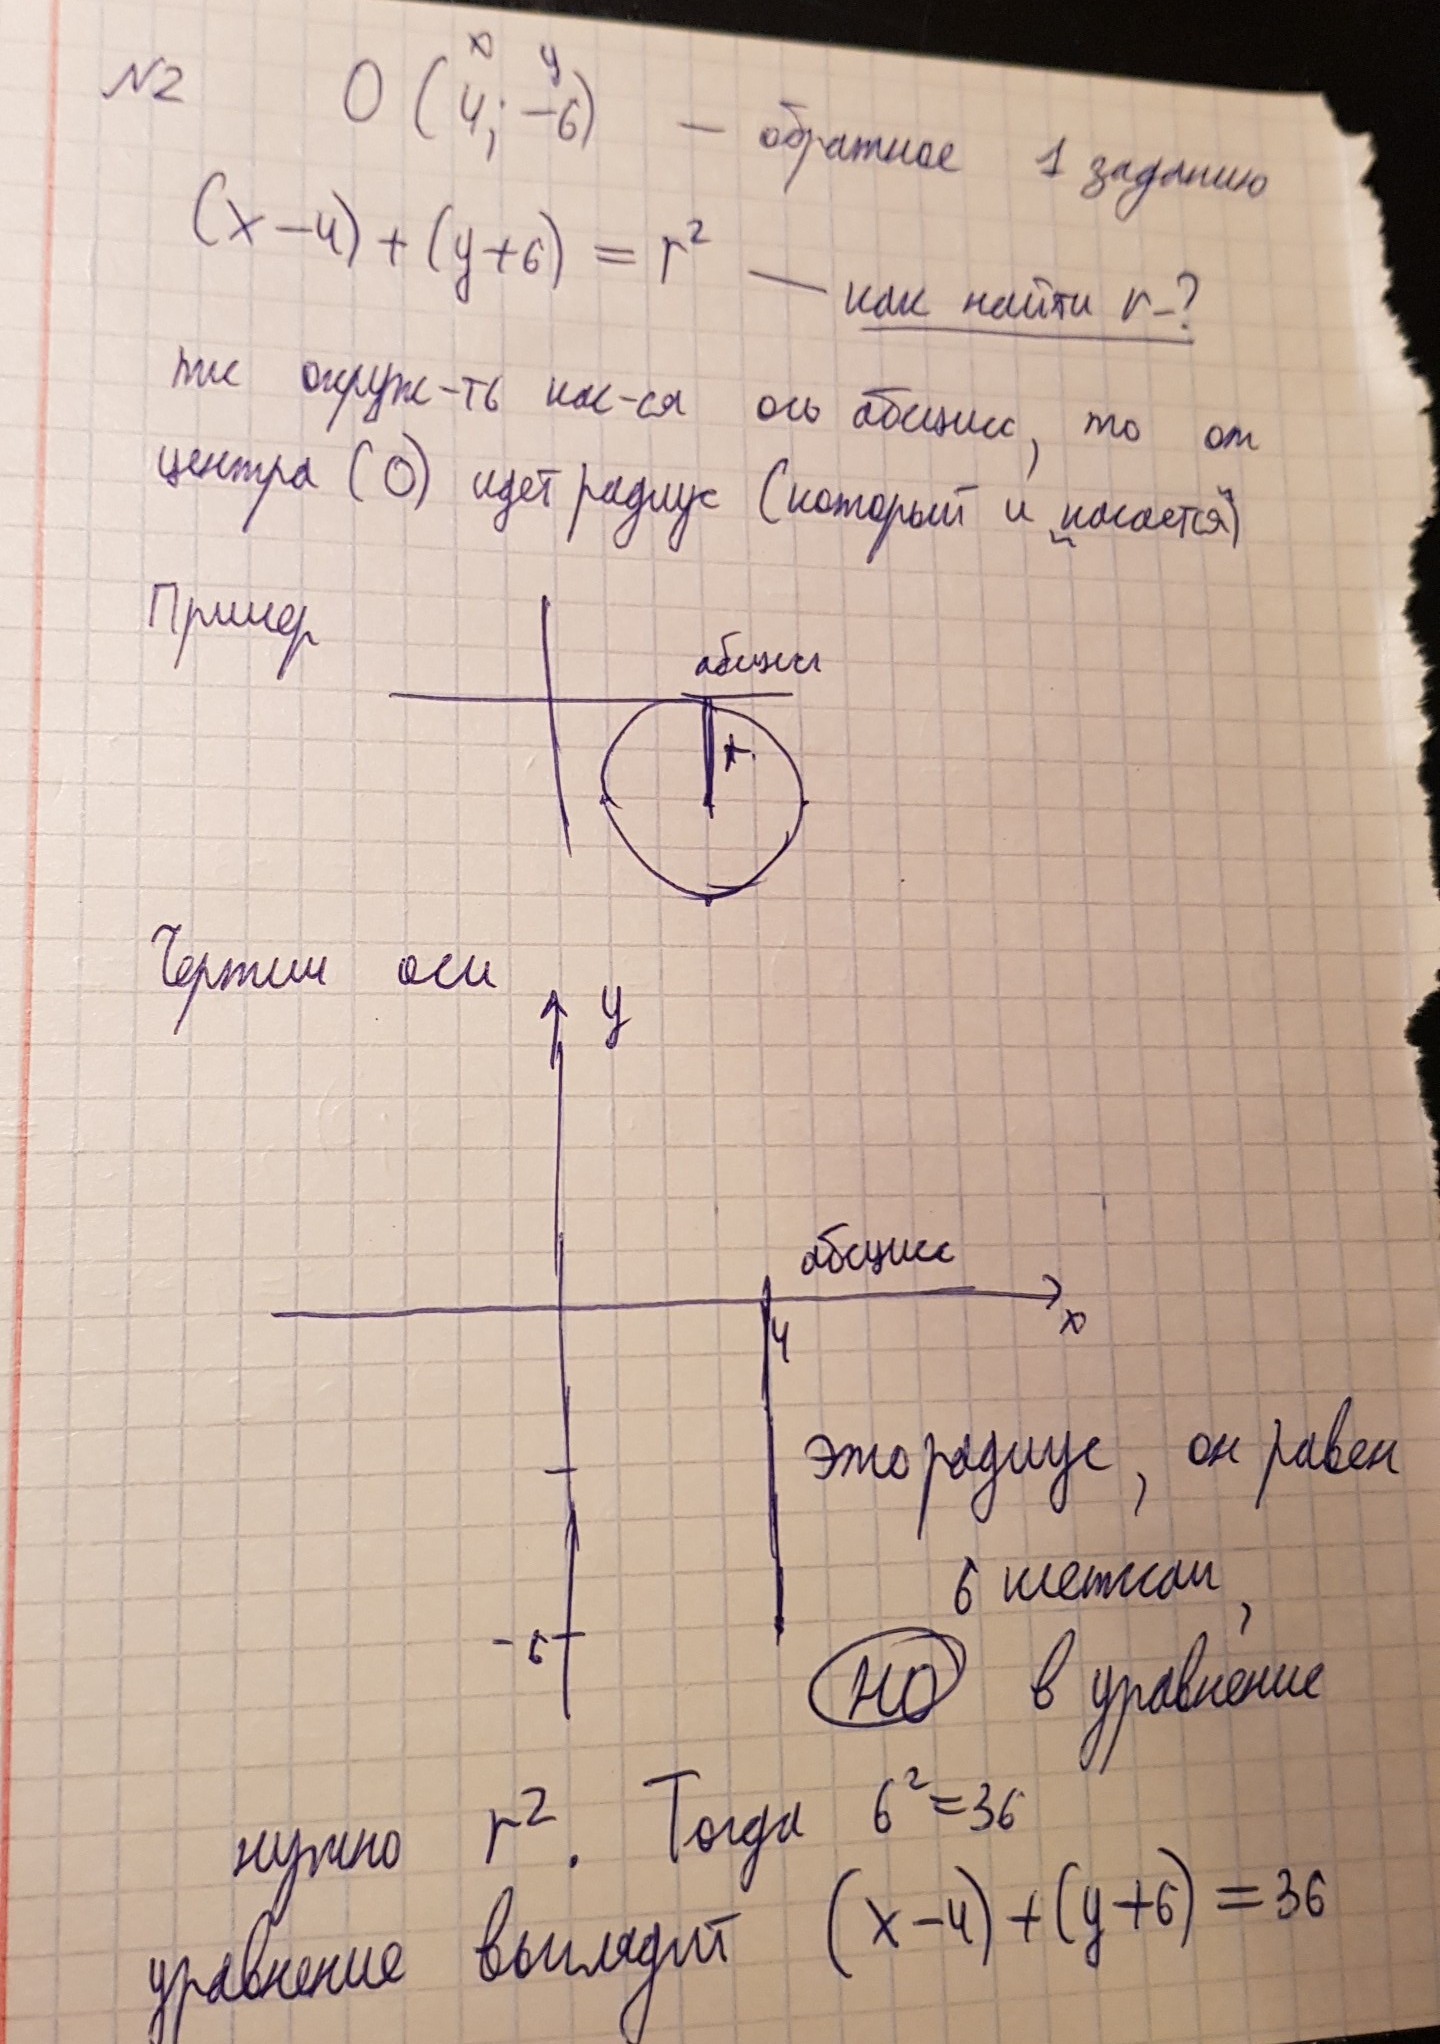 N2 O (4; -6) — обратное 1 заданию
x y
(x-4) + (y+6) = r² — как найти r-?
тк окруж-ть кас-ся ось абсцисс, то от
центра (О) идет радиус (который и касается)
Пример
абцисс
r
Чертим оси
y
абсцисс
x
4
Это радиус, он равен
6 клеткам,
-6
НО в уравнение
нужно r². Тогда 6²=36
уравнение выглядит (x-4)+(y+6)=36